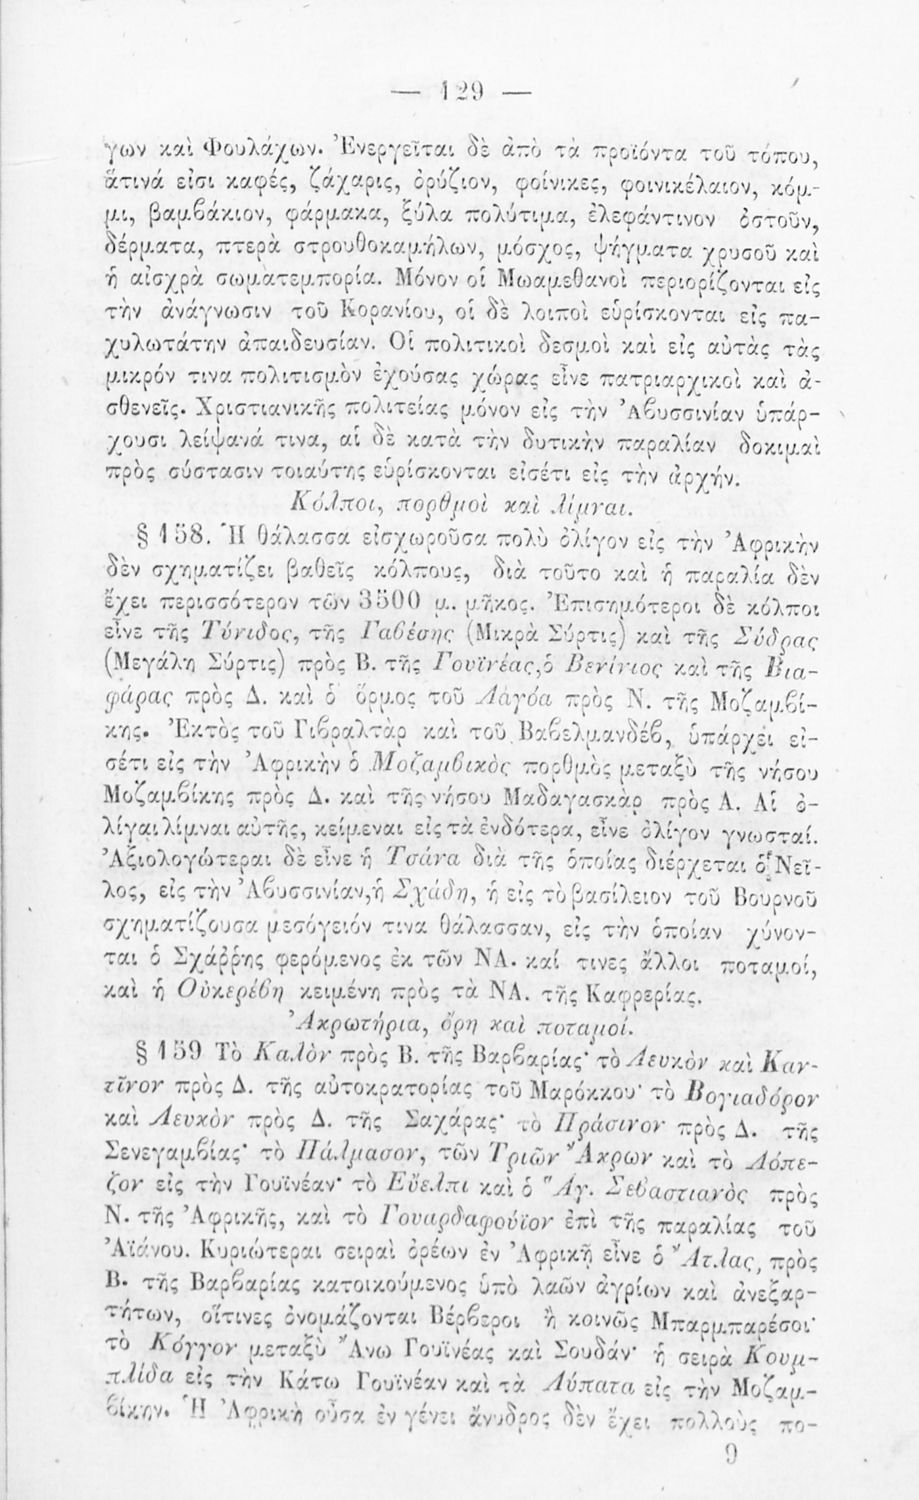 — 129 —
γων καὶ Φουλάχων. Ἐνεργεῖται δὲ ἀπὸ τὰ προϊόντα τοῦ τόπου,
ἅτινά εἰσι καφές, ζάχαρις, ὀρύζιον, φοίνικες, φοινικέλαιον, κόμ-
μι, βαμβάκιον, φάρμακα, ξύλα πολύτιμα, ἐλεφάντινον ὀστοῦν,
δέρματα, πτερὰ στρουθοκαμήλων, μόσχος, ψήγματα χρυσοῦ καὶ
ἡ αἰσχρὰ σωματεμπορία. Μόνον οἱ Μωαμεθανοὶ περιορίζονται εἰς
τὴν ἀνάγνωσιν τοῦ Κορανίου, οἱ δὲ λοιποὶ εὑρίσκονται εἰς πα-
χυλωτάτην ἀπαιδευσίαν. Οἱ πολιτικοὶ δεσμοὶ καὶ εἰς αὐτὰς τὰς
μικρόν τινα πολιτισμὸν ἐχούσας χώρας εἶνε πατριαρχικοὶ καὶ ἀ-
σθενεῖς. Χριστιανικῆς πολιτείας μόνον εἰς τὴν Ἀβυσσινίαν ὑπάρ-
χουσι λείψανά τινα, αἱ δὲ κατὰ τὴν δυτικὴν παραλίαν δοκιμαὶ
πρὸς σύστασιν τοιαύτης εὑρίσκονται εἰσέτι εἰς τὴν ἀρχήν.
Κόλποι, πορθμοὶ καὶ λίμναι.
§ 158. Ἡ θάλασσα εἰσχωροῦσα πολὺ ὀλίγον εἰς τὴν Ἀφρικὴν
δὲν σχηματίζει βαθεῖς κόλπους, διὰ τοῦτο καὶ ἡ παραλία δὲν
ἔχει περισσότερον τῶν 3500 μ. μῆκος. Ἐπισημότεροι δὲ κόλποι
εἶνε τῆς Τύνιδος, τῆς Γαβέσης (Μικρὰ Σύρτις) καὶ τῆς Σύδρας
(Μεγάλη Σύρτις) πρὸς Β. τῆς Γουϊνέας, ὁ Βενίνιος καὶ τῆς Βια-
φάρας πρὸς Δ. καὶ ὁ ὅρμος τοῦ Λάγόα πρὸς Ν. τῆς Μοζαμβί-
κης. Ἐκτὸς τοῦ Γιβραλτὰρ καὶ τοῦ Βαβελμανδέβ, ὑπάρχει εἰ-
σέτι εἰς τὴν Ἀφρικὴν ὁ Μοζαμβικὸς πορθμὸς μεταξὺ τῆς νήσου
Μοζαμβίκης πρὸς Δ. καὶ τῆς νήσου Μαδαγασκὰρ πρὸς Α. Αἱ ὀ-
λίγαι λίμναι αὐτῆς, κείμεναι εἰς τὰ ἐνδότερα, εἶνε ὀλίγον γνωσταί.
Ἀξιολογώτεραι δὲ εἶνε ἡ Τσάνα διὰ τῆς ὁποίας διέρχεται ὁ Νεῖ-
λος, εἰς τὴν Ἀβυσσινίαν, ἡ Σχάδη, ἡ εἰς τὸ βασίλειον τοῦ Βουρνοῦ
σχηματίζουσα μεσόγειόν τινα θάλασσαν, εἰς τὴν ὁποίαν χύνον-
ται ὁ Σχάῤῥης φερόμενος ἐκ τῶν ΝΔ. καί τινες ἄλλοι ποταμοί,
καὶ ἡ Οὐκερέβη κειμένη πρὸς τὰ ΝΑ. τῆς Καφρερίας.
Ἀκρωτήρια, ὄρη καὶ ποταμοί.
§ 159 Τὸ Καλὸν πρὸς Β. τῆς Βαρβαρίας· τὸ Λευκὸν καὶ Καν-
τῖνον πρὸς Δ. τῆς αὐτοκρατορίας τοῦ Μαρόκκου· τὸ Βογιαδόρον
καὶ Λευκὸν πρὸς Δ. τῆς Σαχάρας· τὸ Πράσινον πρὸς Δ. τῆς
Σενεγαμβίας· τὸ Πάλμασον, τῶν Τριῶν Ἄκρων καὶ τὸ Λόπε-
ζον εἰς τὴν Γουϊνέαν· τὸ Εὔελπι καὶ ὁ Ἅγ. Σεβαστιανὸς πρὸς
Ν. τῆς Ἀφρικῆς, καὶ τὸ Γουαρδαφούϊον ἐπὶ τῆς παραλίας τοῦ
Ἀϊάνου. Κυριώτεραι σειραὶ ὀρέων ἐν Ἀφρικῇ εἶνε ὁ Ἄτλας, πρὸς
Β. τῆς Βαρβαρίας κατοικούμενος ὑπὸ λαῶν ἀγρίων καὶ ἀνεξαρ-
τήτων, οἵτινες ὀνομάζονται Βέρβεροι ἢ κοινῶς Μπαρμπαρέσοι·
τὸ Κόγγον μεταξὺ Ἄνω Γουϊνέας καὶ Σουδάν· ἡ σειρὰ Κουμ-
πλίδα εἰς τὴν Κάτω Γουϊνέαν καὶ τὰ Λύπατα εἰς τὴν Μοζαμ-
βίκην. Ἡ Ἀφρικὴ οὖσα ἐν γένει ἄνυδρος δὲν ἔχει πολλοὺς πο-
9